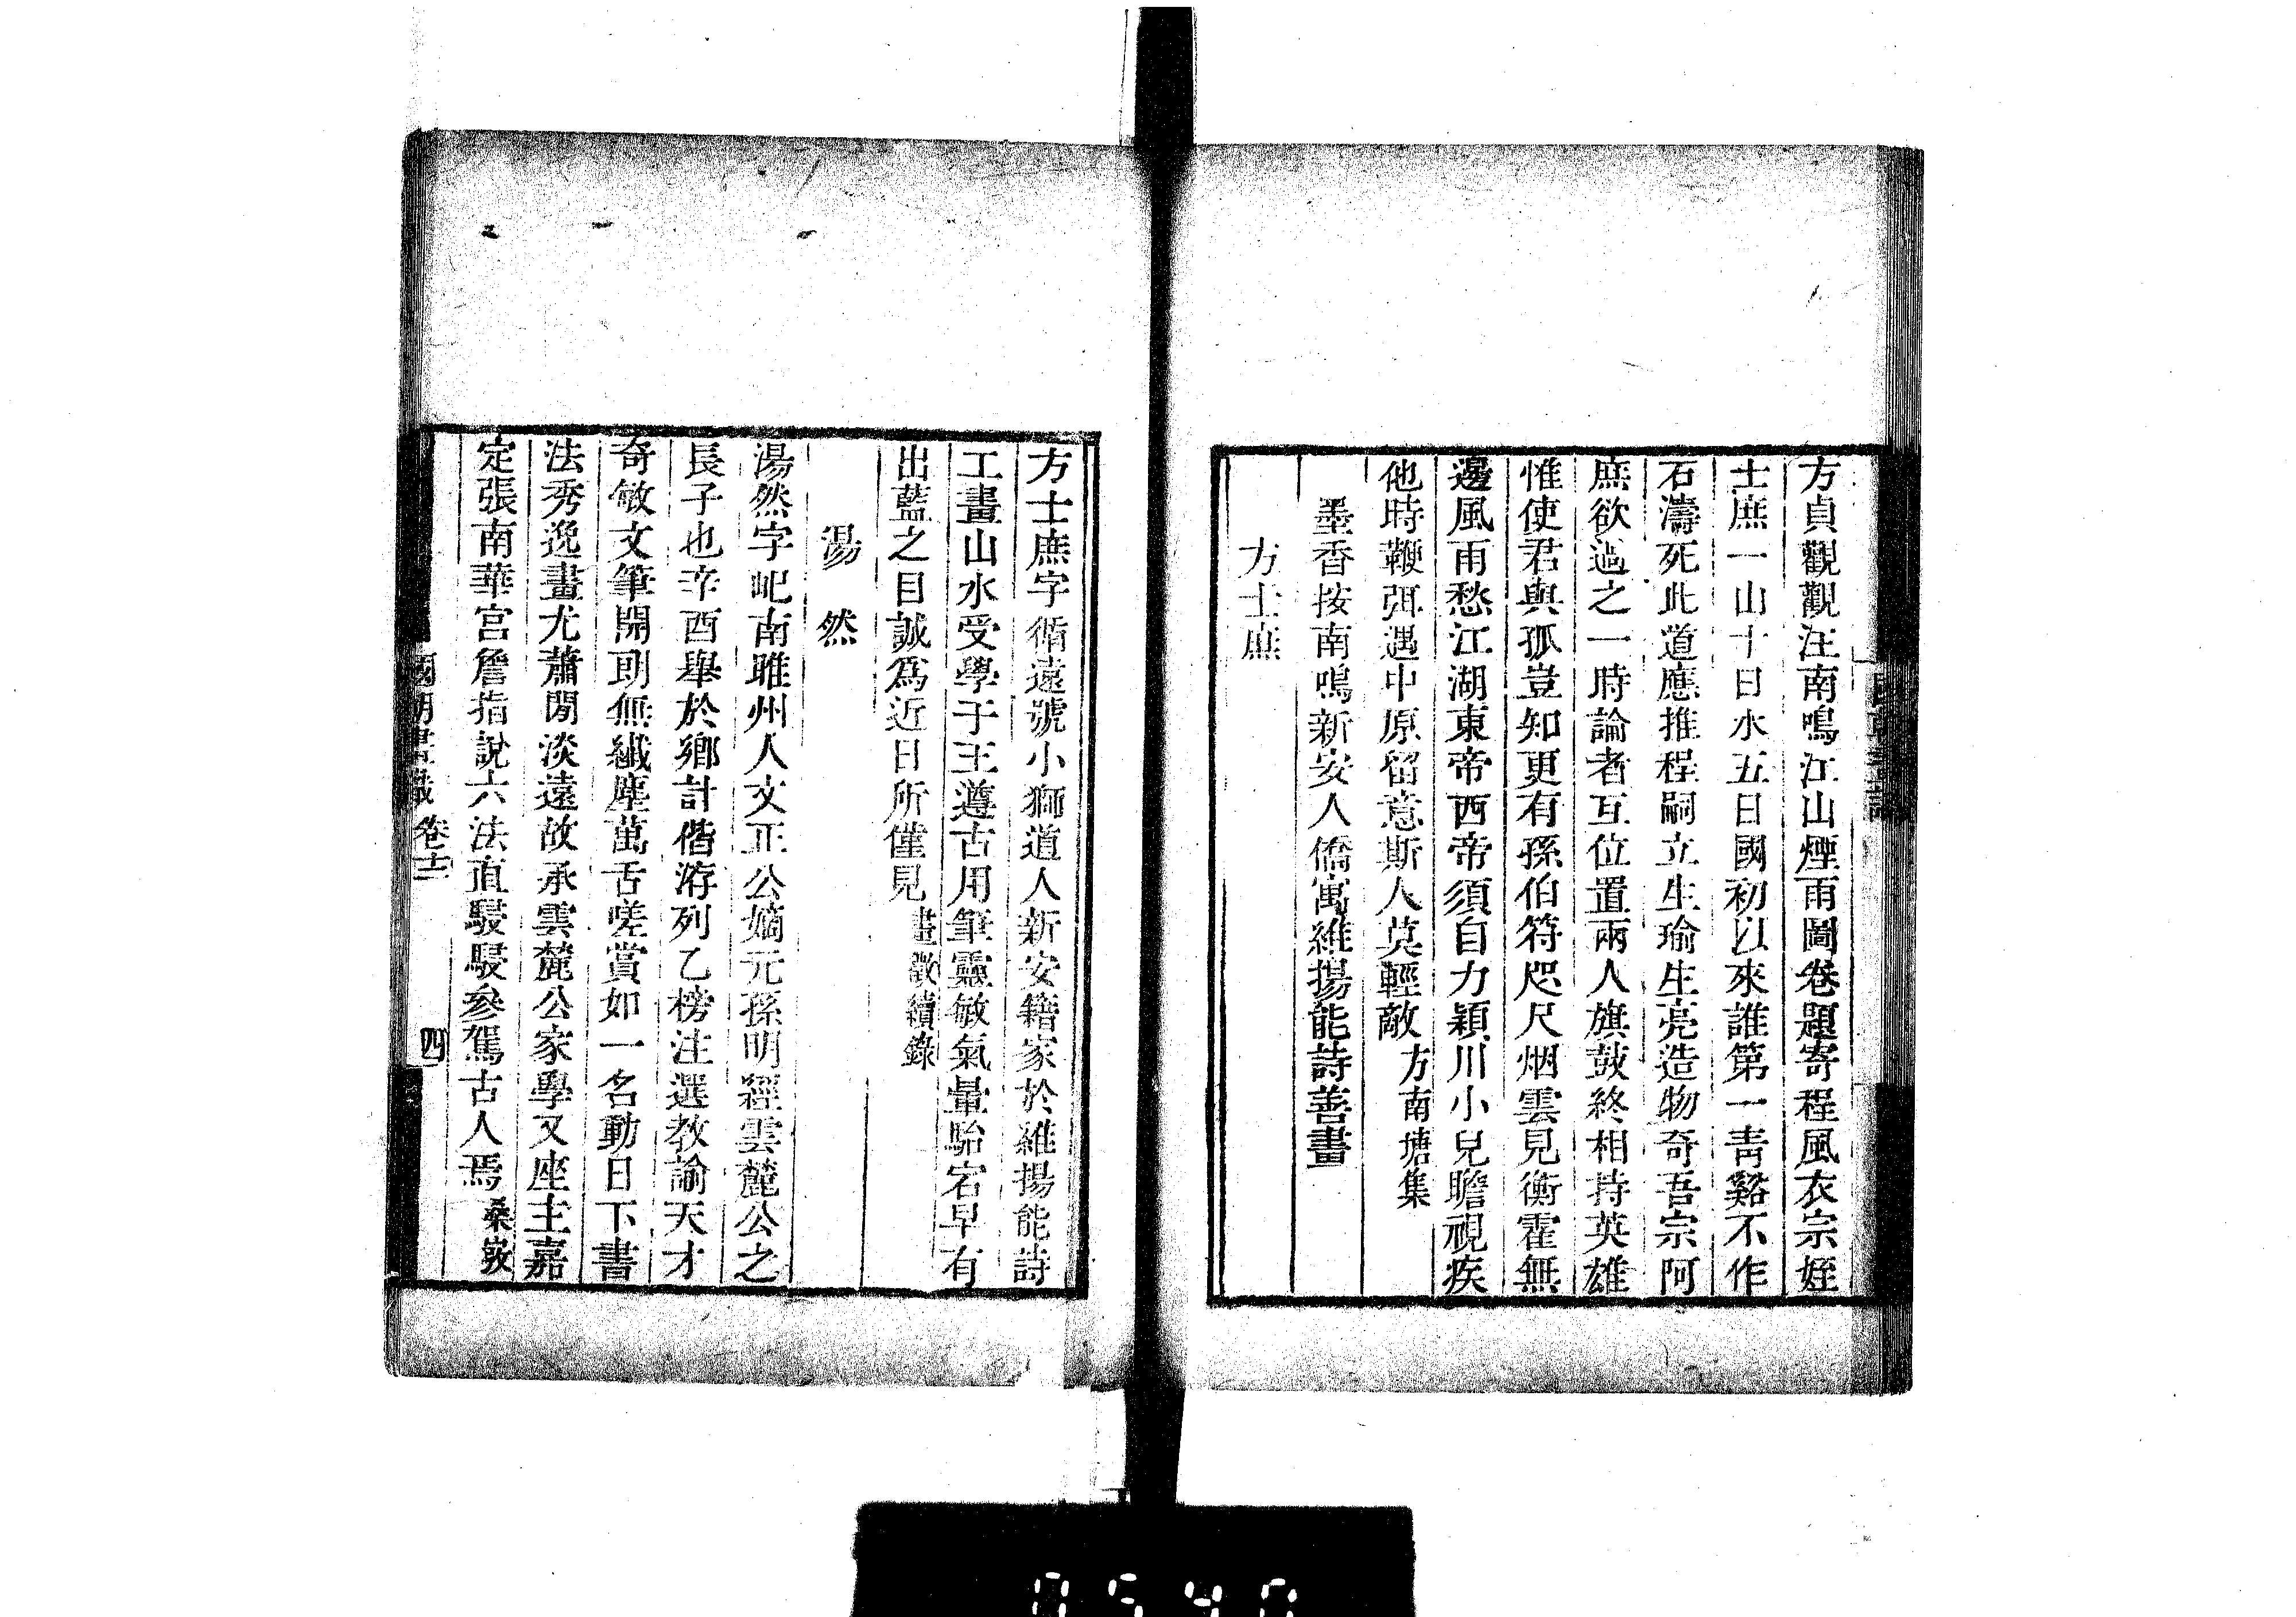 方貞觀觀汪南鳴江山煙雨圖卷題寄程風衣宗姪
士庶一山十日水五日國初以來誰第一靑谿不作
石濤死此道應推程嗣立生瑜生亮造物奇吾宗阿
庶欲過之一時論者互位置兩人旗鼓終相持英雄
惟使君與孤豈知更有孫伯符咫尺烟雲見衡霍無
邊風雨愁江湖東帝西帝須自力穎川小兒瞻視疾
他時鞭弭遇中原留意斯人莫輕敵方南塘集
墨香按南鳴新安人僑寓維揚能詩善畫
方士庶
方士庶字循遠號小獅道人新安籍家於維揚能詩
工畫山水受學于王遵古用筆靈敏氣暈駘宕早有
出藍之目誠爲近日所僅見畫徵續錄
湯然
湯然字屺南睢州人文正公嫡元孫明經雲麓公之
長子也辛酉舉於鄉計偕游列乙榜注選教諭天才
奇敏文筆開朗無纖塵萬舌嗟賞如一名動日下書
法秀逸畫尤蕭閒淡遠故承雲麓公家學又座主嘉
定張南華宮詹指說六法直駸駸參駕古人焉桑弢
國朝畫識 卷十二 四